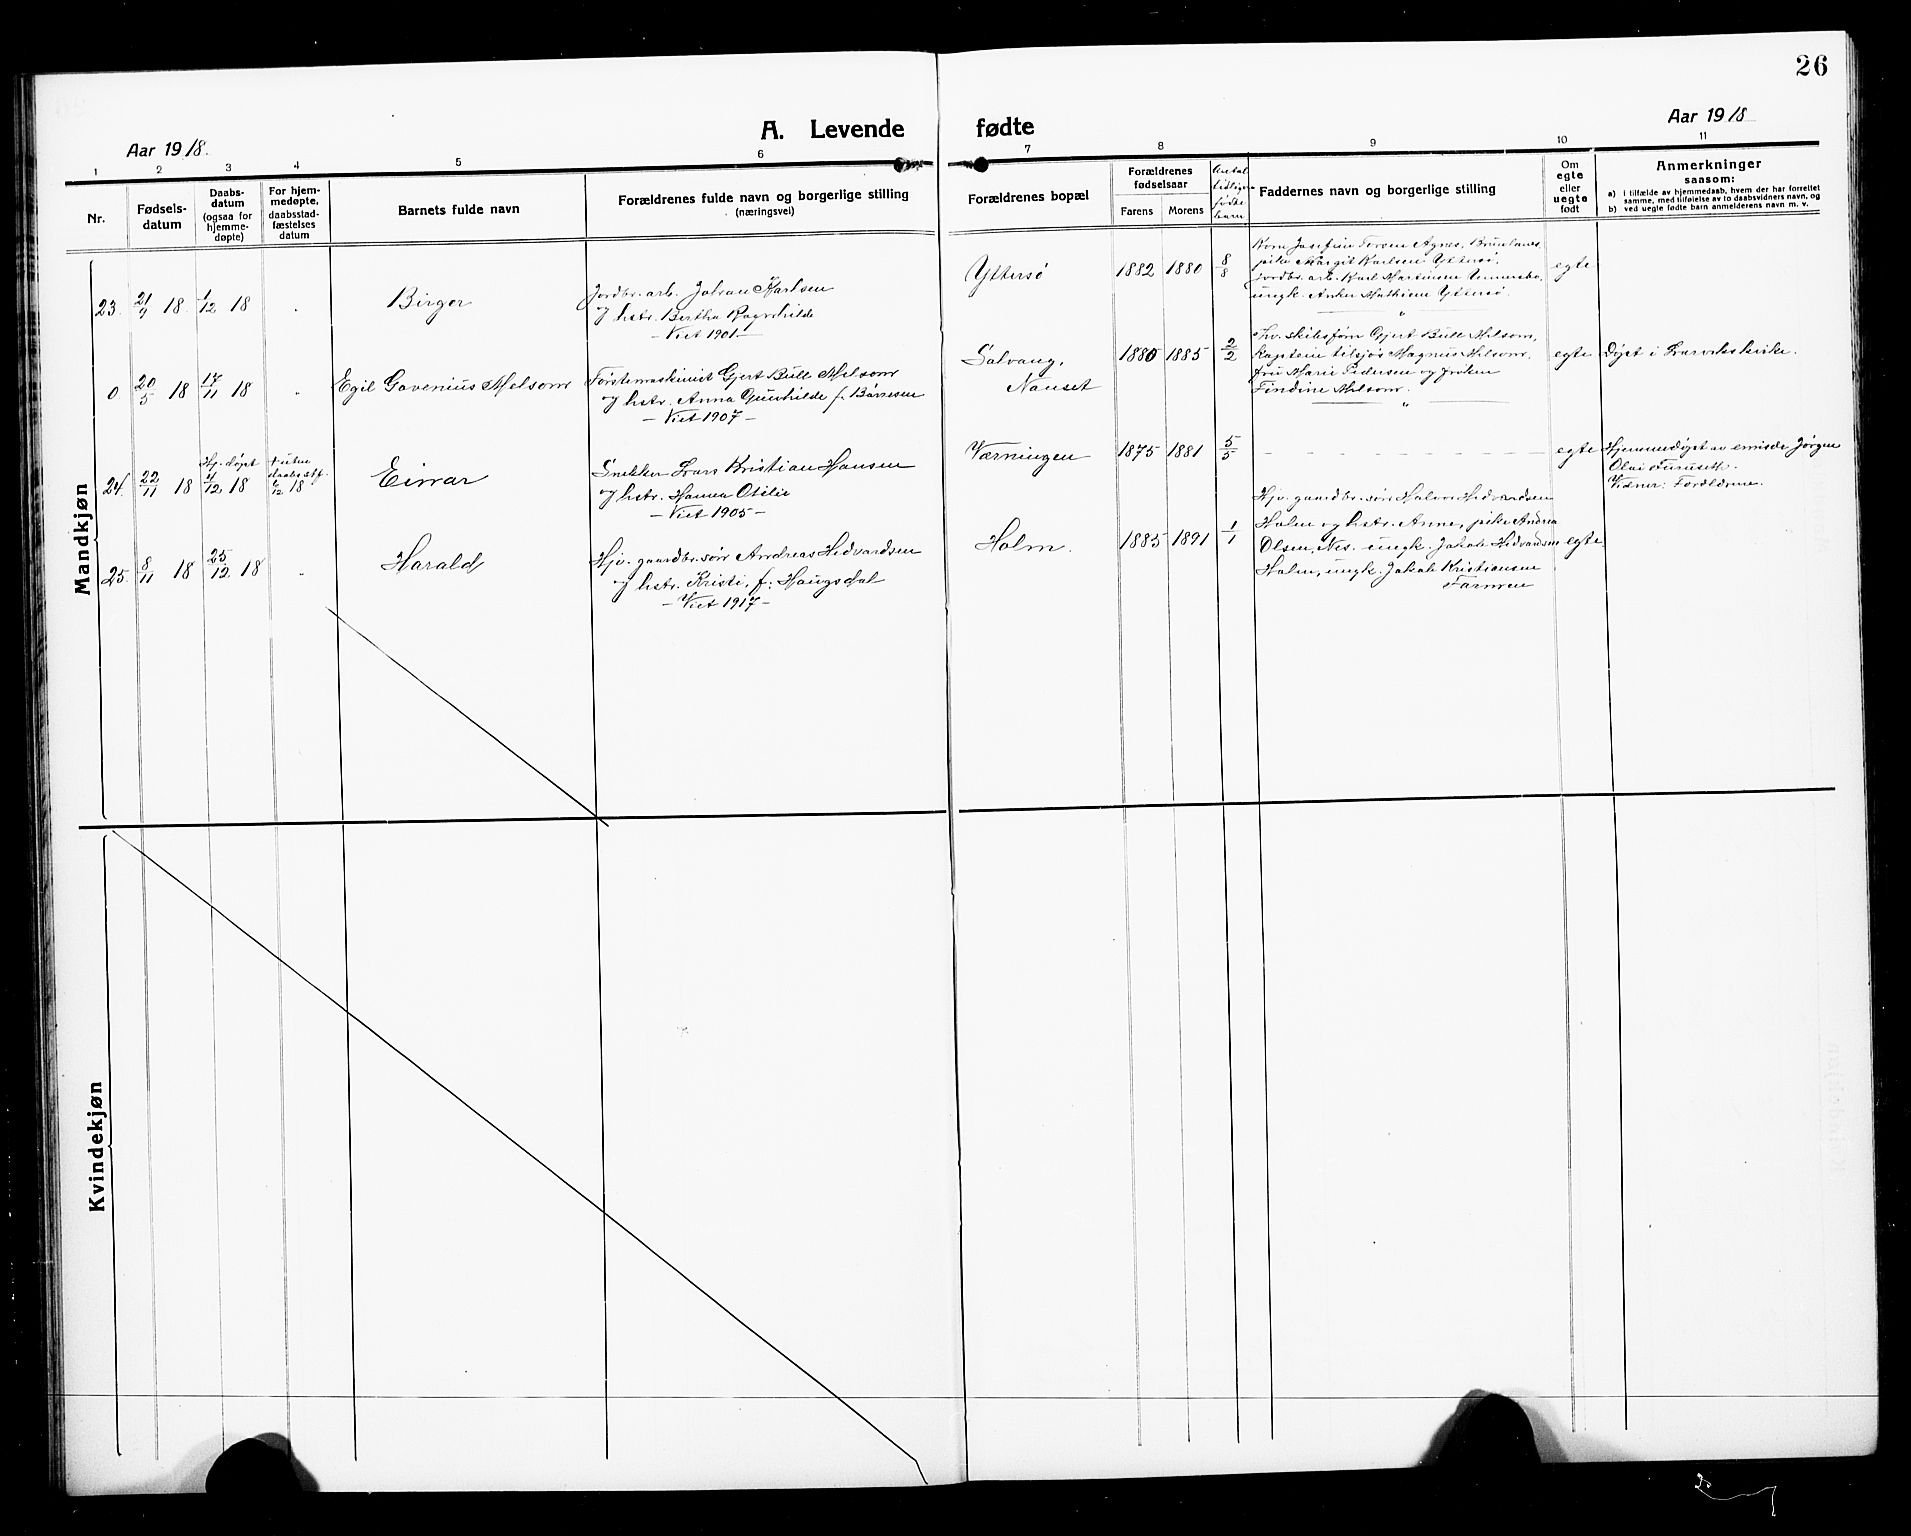 26
Aar 1918.
A. Levende fødte
Aar 1918
1 2 3 4 5 6 7 8 9 10 11
Nr.
Fødsels-
datum
Daabs-
datum
(ogsaa for
hjemme-
døpte)
For hjem-
medøpte,
daabsstad-
fæstelses
datum
Barnets fulde navn
Forældrenes fulde navn og borgerlige stilling
(næringsvei)
Forældrenes bopæl
Forældrenes
fødselsaar
Farens Morens
Antal
tidligere
fødte
barn
Faddernes navn og borgerlige stilling
Om
egte
eller
uegte
født
Anmerkninger
saasom:
a) i tilfælde av hjemmedaab, hvem der har forrettet
samme, med tilføielse av to daabsvidners navn, og
b) ved uegte fødte barn anmelderens navn m. v.
Mandkjøn
23. 21/9 18. 1/12 18 Birger
Jordbr. arb. Johan Karlsen
og hstr. Bertha Ragnhilde
- Viet 1901 -
Yttersø 1882 1880 8/8
Kone Josefine Torsen Agnes, Brunlanes,
pike Margit Karlsen Yttersø,
jordbr. arb. Karl Martinsen
ungk. Anker Mathisen Yttersø.
egte
0 20/5 18 17/11 18 Egil Gavenius Melsom
Førstemaskinist Gjert Bull Melsom
og hstr. Anna Gunhilde f. Børresen
- Viet 1907 -
Solvang,
Nanset
1880 1885 2/2
skibsfører Gjert Bull Melsom,
kaptein tilsjøs Magnus Melsom,
fru Marie Pedersen og frøken
Findine Melsom.
egte Døpt i Larviks kirke.
24. 22/11 18 Hj. døpt 4/12 18
† uten
daabsstf.
6/12 18
Einar
Snekker Lars Kristian Hansen
og hstr. Hanna Otilie
- Viet 1905 -
Værningen 1875 1881 5/5
egte
Hjemmedøpt av emisær Jørgen
Olai Furuseth.
Vidner: Forældrene.
25. 8/11 18 25/12 18 Harald
Hjv. gaardbr. søn Andreas Hedvardsen
og hstr. Kristi, f. Haugsdal
- Viet 1917 -
Holm. 1885 1891 1/1
Hjv. gaardbr. søn Halvor Hedvardsen
Holm og hstr. Anne, pike Andrea
Olsen, Nes. ungk. Jakob Hedvardsen
Holm, ungk. Jakob Kristiansen
Farmen
egte.
Kvindekjøn